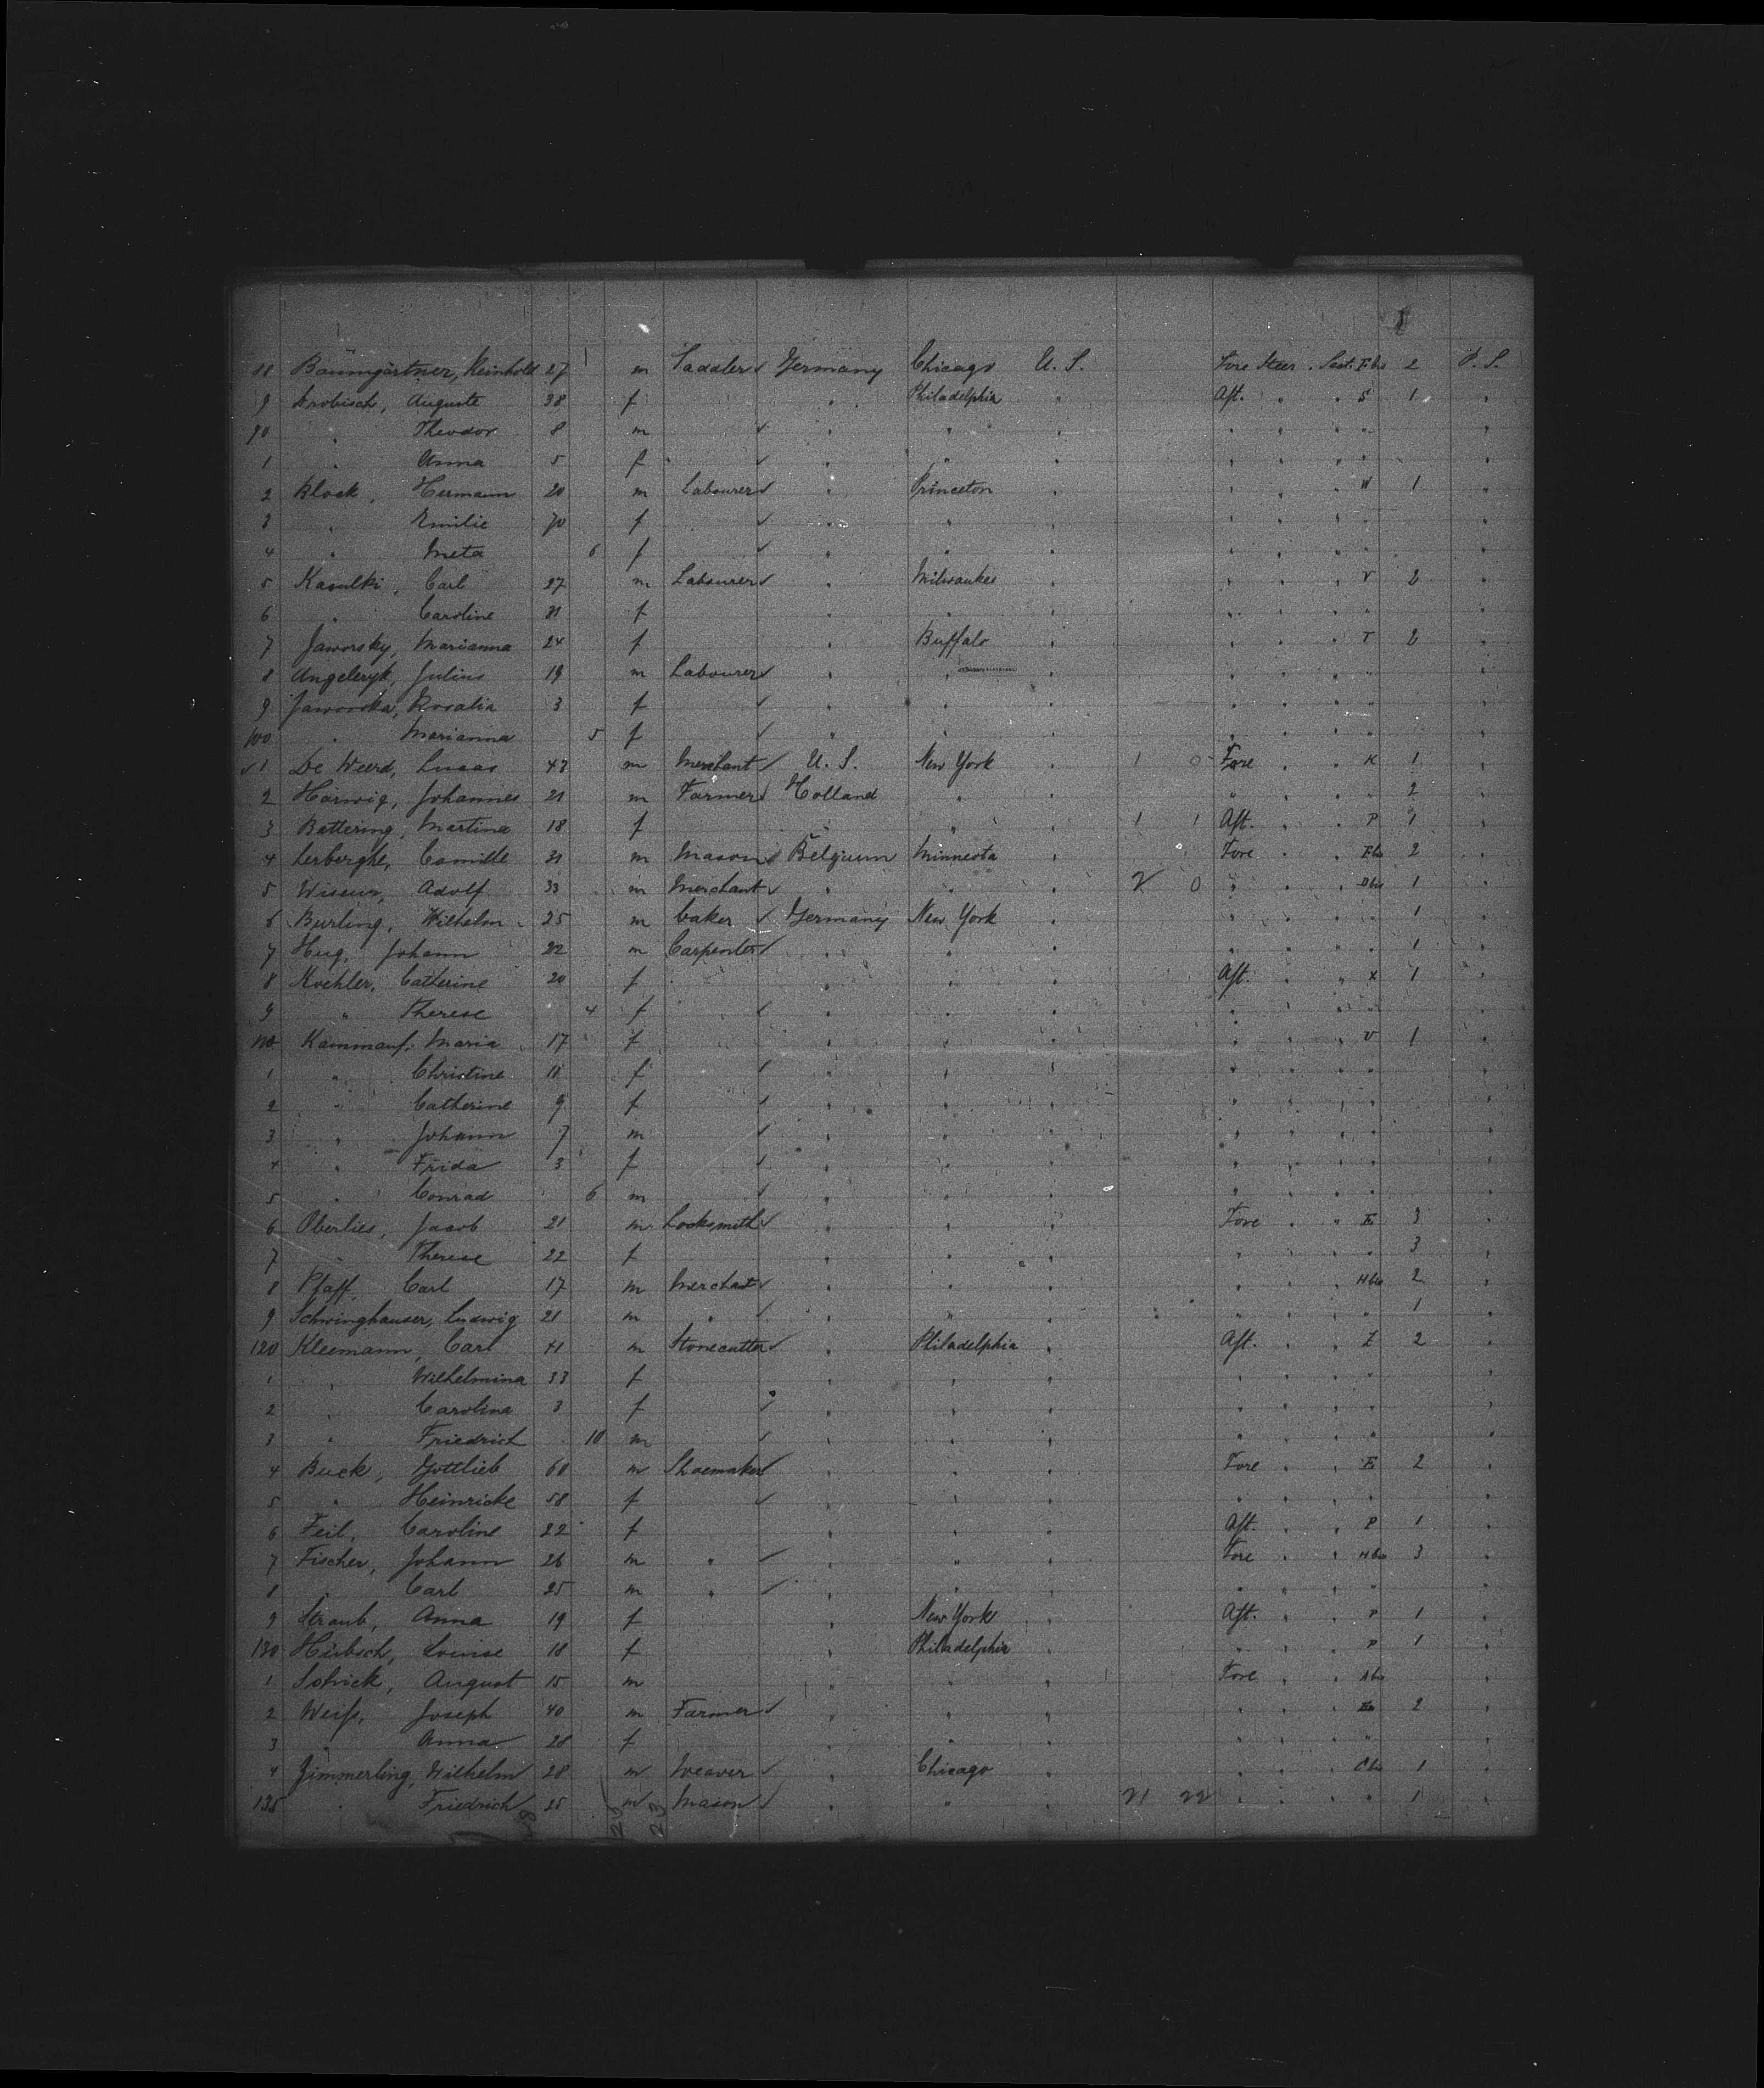 88 Baumgärtner, Reinhold 27 m Saddler ✓ Germany Chicago U. S. Fore Steer. Sect. Fbs 2 P. S.
9 Drobisch, Auguste 38 f " Philadelphia " Aft. " " S 1 "
90 " Theodor 8 m ✓ " " " " " " " "
1 " Anna 5 f ✓ " " " " " " "
2 Block, Hermann 20 m Labourer ✓ " Princeton " " " W 1 "
3 " Emilie f ✓ " " " " " " "
4 " Meta 6 f ✓ " " " " " " " "
5 Kasulki, Carl 27 m Labourer ✓ " Milwaukee " " " " V 2 "
6 " Caroline 31 f " " " " " " " "
7 Jaworsky, Marianna 24 f " Buffalo " " " " T 2 "
8 Angeleryk, Julius 19 m Labourer ✓ " " " " " " "
9 Jaworska, Rosalia 3 f ✓ " " " " " " " "
100 " Marianna 5 f ✓ " " " " " " " "
✓ 1 De Weerd, Lucas 43 m Merchant ✓ U. S. New York " 1 0 Fore " " K 1 "
2 Harwig, Johannes 21 m Farmer ✓ Holland " " " " " " 2 "
3 Battering, Martina 18 f " " " 1 1 Aft. " " P 1 "
4 Lerberghe, Camille 31 m Mason ✓ Belgium Minnesota " Fore " " Fbs 2 "
5 Adolf 33 m Merchant ✓ " " " 2 0 " " " Dbs 1 "
6 Burling, Wilhelm 25 m Caker ✓ Germany New York " " " " " 1 "
7 Hug, Johann 22 m Carpenter ✓ " " " " " " " 1 "
8 Koehler, Catherine 20 f " " " Aft. " " X 1 "
9 " Therese 4 f ✓ " " " " " " " "
110 Kammauf, Maria 17 f " " " " " " U 1 "
1 " Christine 11 f ✓ " " " " " " " "
2 " Catherine 9 f ✓ " " " " " " " "
3 " Johann 7 m ✓ " " " " " " " "
4 " Frida 3 f ✓ " " " " " " " "
5 " Conrad 6 m ✓ " " " " " " " "
6 Oberlies, Jacob 21 m Locksmith ✓ " " " Fore " " E 3 "
7 " Therese 22 f " " " " " " " 3 "
8 Pfaff, Carl 17 m Merchant ✓ " " " " " " Hbs 2 "
9 Schwinghauser, Ludwig 21 m " ✓ " " " " " " " 1 "
120 Kleemann, Carl 41 m Stonecutter ✓ " Philadelphia " Aft. " " Z 2 "
1 " Wilhelmina 33 f " " " " " " " "
2 " Carolina 3 f ✓ " " " " " " " "
3 " Friedrich 10 m ✓ " " " " " " " "
4 Buck, Gottlieb 60 m Shoemaker ✓ " " " Fore " " E 2 "
5 " Heinricke 58 f ✓ " " " " " " " "
6 Feil, Caroline 22 f " " " Aft. " " P 1 "
7 Fischer, Johann 26 m " ✓ " " " Fore " " Hbs 3 "
8 " Carl 25 m " ✓ " " " " " " " "
9 Straub, Anna 19 f " New York " Aft. " " P 1 "
130 Hirbsch, Louise 18 f " Philadelphia " " " " P 1 "
1 August 15 m " " " Fore " " Abs "
2 Weiß, Joseph 40 m Farmer ✓ " " " " " " 2 "
3 " Anna 28 f " " " " " " " "
4 Zimmerling, Wilhelm 28 m Weaver ✓ " Chicago " " " " Cbs 1 "
135 " Friedrich 25 m Mason ✓ " " " 21 22 " " " " 1 "
23